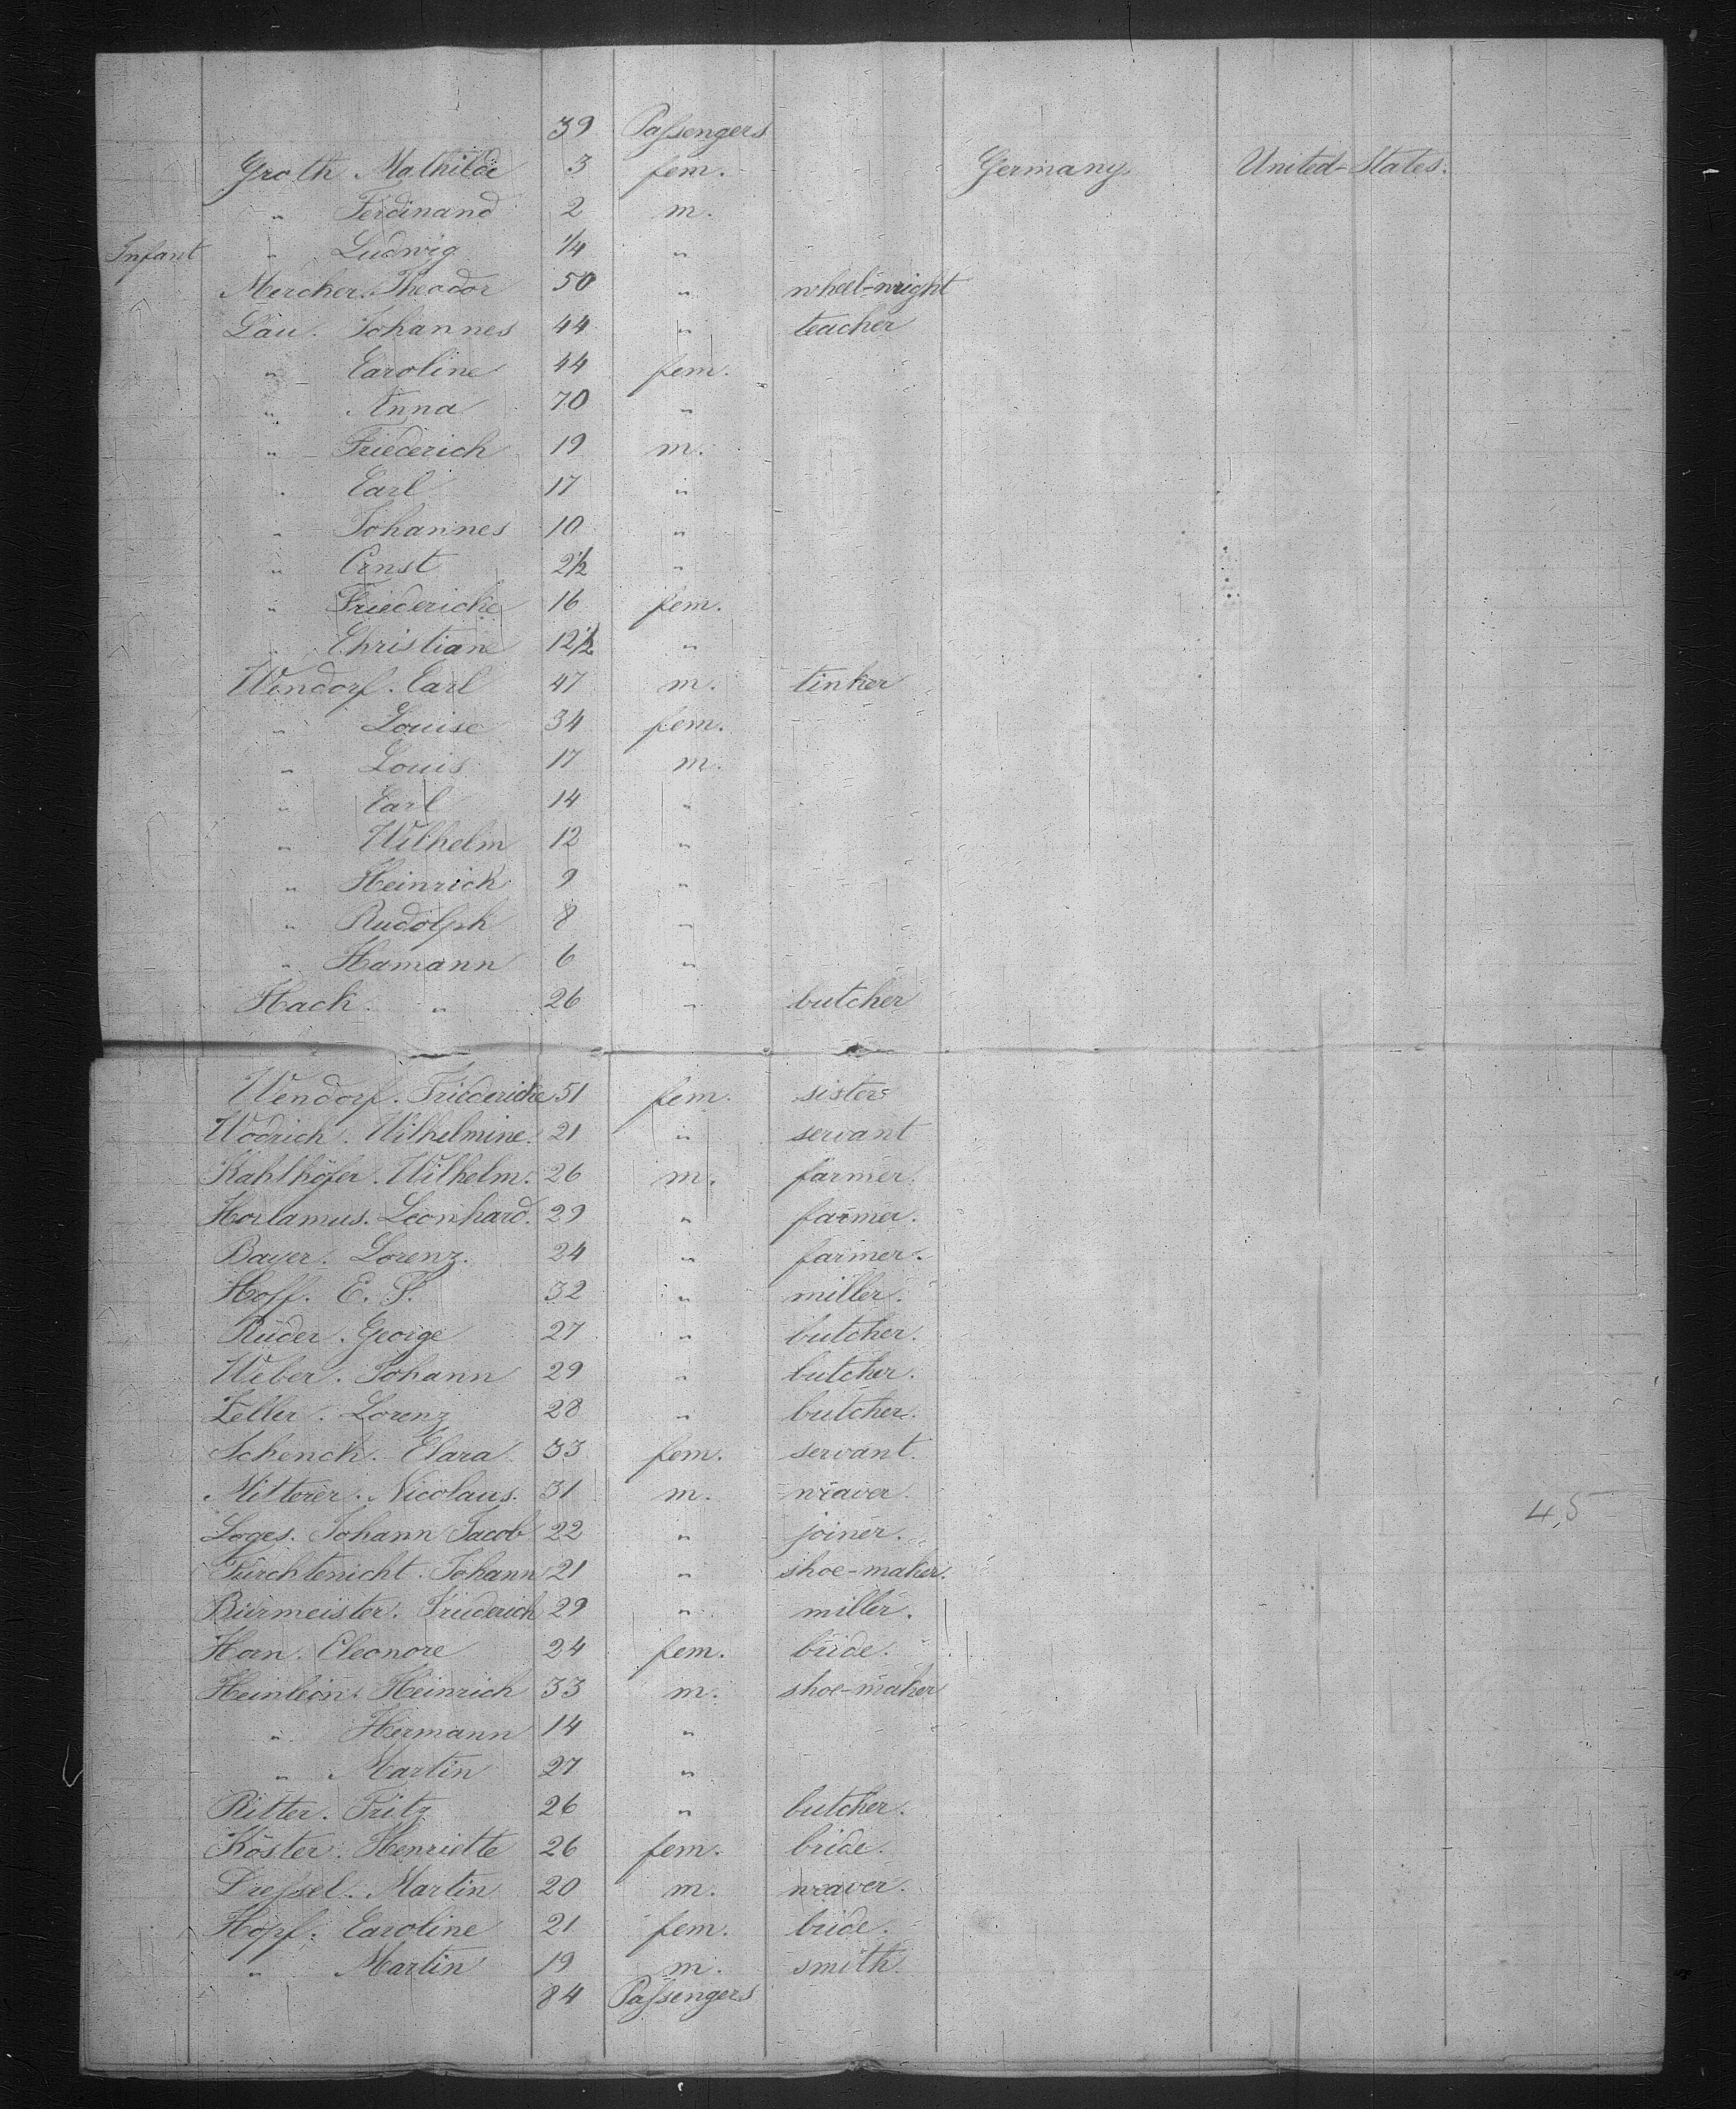 39 Passengers
Groth Mathilde 3 fem. Germany. United-States.
" Ferdinand 2 m.
Infant " Ludwig 1/4 "
Mercker. Theodor 50 " wheel-wright
Lau. Johannes 44 " teacher
" Caroline 44 fem.
" Anna 70 "
" Friederich 19 m.
" Carl 17 "
" Johannes 10 "
" Ernst 2 1/2 "
" Friedericke 16 fem.
" Christiane 12 1/2 "
Wendorf. Carl 47 m. tinker
" Louise 34 fem.
" Louis 17 m.
" Carl 14 "
" Wilhelm 12 "
" Heinrich 9 "
" Rudolph 8 "
" Hamann 6 "
Hack. " 26 " butcher
Wendorf. Friedericke 51 fem. sister
Wodrich. Wilhelmine. 21 " servant
Kahlhöfer. Wilhelm. 26 m. farmer.
Horlamus. Leonhard. 29 " farmer.
Bayer. Lorenz. 24 " farmer.
Hoff. E. F. 32 " miller.
Ruder. George 27 " butcher.
Weber. Johann 29 " butcher.
Zeller. Lorenz 28 " butcher.
Schenck. Clara 33 fem. servant.
Mitterer. Nicolaus. 31 m. weaver.
Loges. Johann Jacob 22 " joiner. 45
Fürchtenicht. Johann 21 " shoe-maker.
Bürmeister. Friederich 29 " miller.
Horn. Eleonore 24 fem. bride.
Heinlein. Heinrich 33 m. shoe-maker
" Hermann 14 "
" Martin 27 "
Ritter. Fritz 26 " butcher.
Köster. Henriette 26 fem. bride.
Dressel. Martin 20 m. weaver.
Höpf. Caroline 21 fem. bride.
" Martin 19 m. smith.
84 Passengers